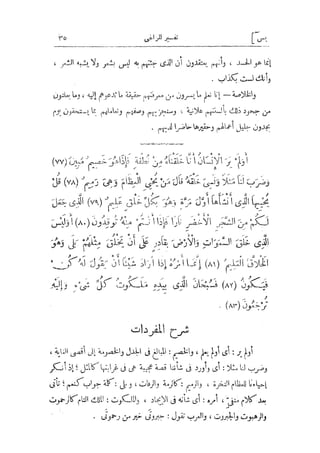 يس] تفسير المراغى ٣٥
إنما هو الحسد ، وأنهم يعتقدون أن الذى جئتهم به ليس بشعر ولا يشبه الشعر ،
وأنك لست بكذاب .
والخلاصة — إنا نعلم ما يسرون من معرفتهم حقيقة ما تدعوهم إليه ، وما يعلنون
من جحود ذلك بألسنتهم علانية ، وسنجزيهم وصفهم ونعاملهم بما يستحقون يوم
يجدون جليل أعمالهم وحقيرها حاضرا لديهم .
أَوَلَمْ يَرَ الْإِنْسَانُ أَنَّا خَلَقْنَاهُ مِنْ نُطْفَةٍ فَإِذَا هُوَ خَصِيمٌ مُبِينٌ (٧٧)
وَضَرَبَ لَنَا مَثَلًا وَنَسِىَ خَلْقَهُ قَالَ مَنْ يُحْيِى الْعِظَامَ وَهِىَ رَمِيمٌ (٧٨) قُلْ
يُحْيِيهَا الَّذِى أَنْشَأَهَا أَوَّلَ مَرَّةٍ وَهُوَ بِكُلِّ خَلْقٍ عَلِيمٌ (٧٩) الَّذِى جَعَلَ
لَكُمْ مِنَ الشَّجَرِ الْأَخْضَرِ نَارًا فَإِذَا أَنْتُمْ مِنْهُ تُوقِدُونَ (٨٠) أَوَلَيْسَ
الَّذِى خَلَقَ السَّمَوَاتِ وَالْأَرْضَ بِقَادِرٍ عَلَى أَنْ يَخْلُقَ مِثْلَهُمْ بَلَى وَهُوَ
الْخَلَّاقُ الْعَلِيمُ (٨١) إِنَّمَا أَمْرُهُ إِذَا أَرَادَ شَيْئًا أَنْ يَقُولَ لَهُ كُنْ
فَيَكُونُ (٨٢) فَسُبْحَانَ الَّذِى بِيَدِهِ مَلَكُوتُ كُلِّ شَىْءٍ وَإِلَيْهِ
تُرْجَعُونَ (٨٣) .
شرح المفردات
أولم ير : أى أولم يعلم ، والخصيم : المبالغ فى الجدل والخصومة إلى أقصى الغاية ،
وضرب لنا مثلا : أى وأورد فى شأننا قصة عجيبة هى فى غرابتها كالمثل ؛ إذ أنكر
إحياءنا للعظام النخرة ، والرميم : كالرمة والرفات ، وبلى : كلمة جواب كنعم ؛ تأتى
بعد كلام منفى ، أمره : أى شأنه فى الإيجاد ، والملكوت : الملك التام كالرحموت
والرهبوت والجبروت ، والعرب تقول : جبروتى خير من رحموتى .